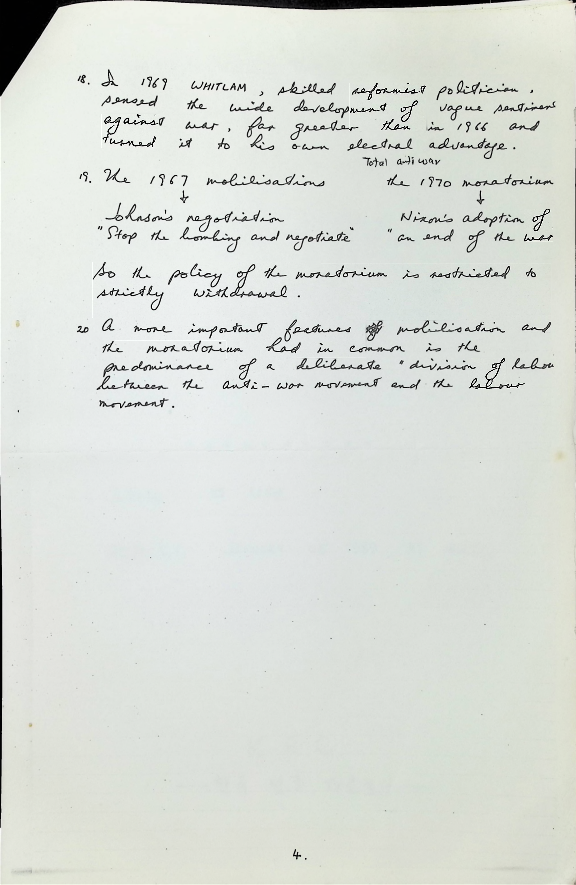 18. In 1969 WHITLAM, skilled reformist politician,
sensed the wide development of vague sentiment
against war, far greater than in 1966 and
turned it to his own electral advantage.
Total anti war
19. The 1967 mobilisations the 1970 moratorium
↓ ↓
Johnson's negotiation Nixon's adoption of
"Stop the bombing and negotiate" "an end of the war
So the policy of the moratorium is restricted to
strictly withdrawal.
20 A more important features of mobilisation and
the moratorium had in common is the
predominance of a deliberate "division of labou
between the anti-war movement and the labour
movement.
4.